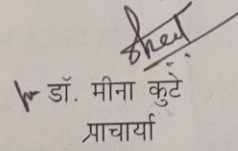 डॉ. मीना कुटे
प्राचार्या